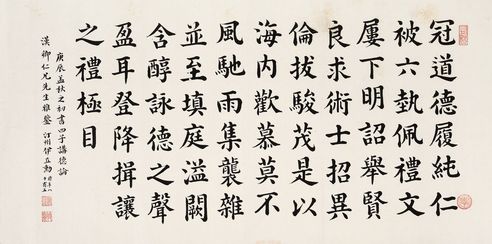 冠道德履純仁
被六執佩禮文
屢下明詔舉賢
良求術士招異
倫拔駿茂是以
海内歡慕莫不
風馳雨集襲雜
並至填庭溢闕
含醇詠德之聲
盈耳登降揖讓
之禮極目
庚辰孟秋之初書四子講德論
漢卿仁兄先生雅鑒 汀州伊立勳